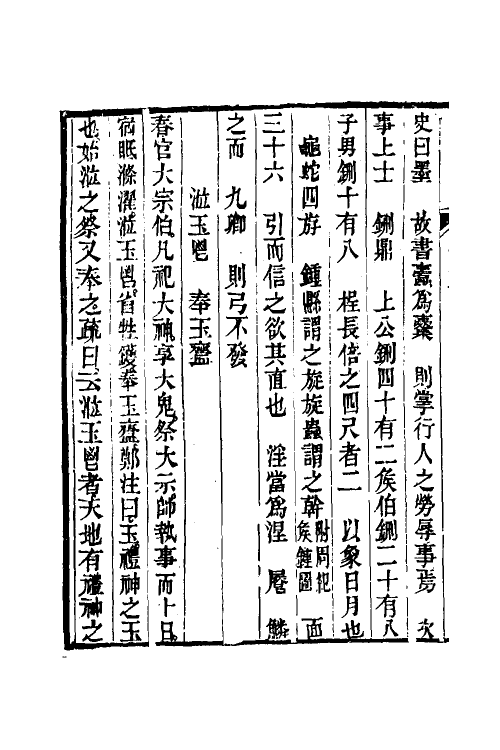 史曰墨　故書橐爲櫜　則掌行人之勞辱事焉　次
事上士　鉶鼎　上公鉶四十有二矦伯鉶二十有八
子男鉶十有八　桯長倍之四尺者二　以象日月也
龜蛇四斿　鍾縣謂之旋旋蟲謂之幹附周𥘵矦鍾圖　面
三十六　引而信之欲其直也　淫當爲湼　鴈　鱗
之而　九卿　則弓不發
涖玉鬯　奉玉齍
春官大宗伯凡祀大神享大鬼祭大示帥執事而卜日
宿眂滌濯涖玉鬯省牲鑊奉玉齍鄭注曰玉禮神之玉
也始涖之祭又奉之疏曰云涖玉鬯者天地有禮神之